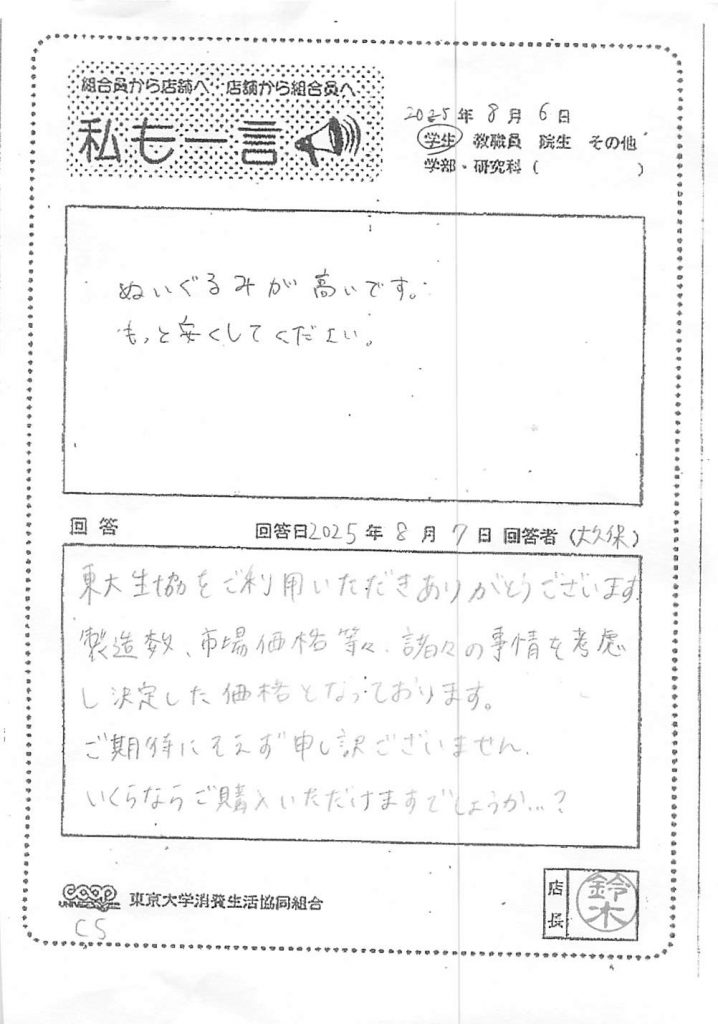 組合員から店舗へ 店舗から組合員へ
私も一言
2025年8月6日
学生 教職員 院生 その他
学部・研究科( )
ぬいぐるみが高いです。
もっと安くしてください。
回答 回答日2025年8月7日 回答者(大久保)
東大生協をご利用いただきありがとうございます
製造数、市場価格等々、諸々の事情を考慮
し決定した価格となっております。
ご期待にそえず申し訳ございません。
いくらならご購入いただけますでしょうか…?
coop
UNIVERSITY
東京大学消費生活協同組合
CS
店長
鈴木